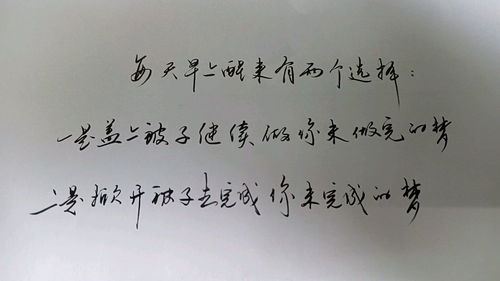 每天早上醒来有两个选择：
一是盖上被子继续做你未做完的梦
二是掀开被子去完成你未完成的梦